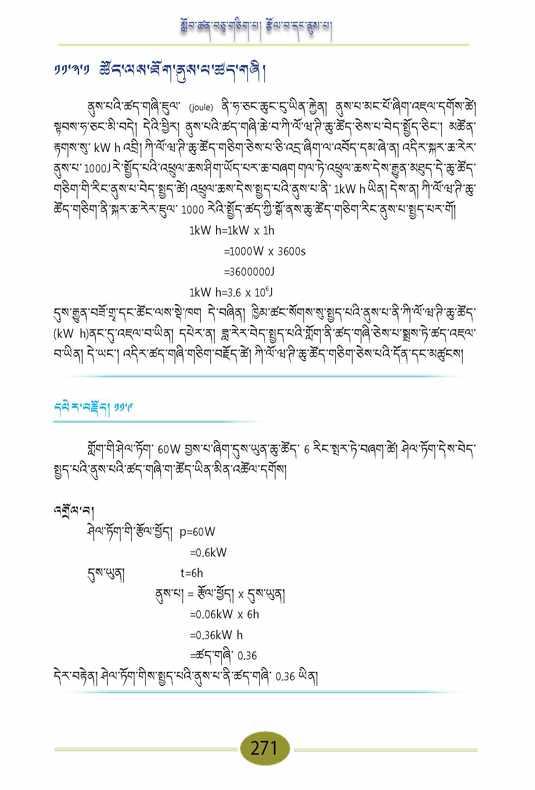 སློབ་ཚན་བཅུ་གཅིག་པ། རྩོལ་བ་དང་ནུས་པ།
༡༡་༣་༡ ཚོང་ལས་ཐོག་ནུས་པ་ཚད་གཞི།
ནུས་པའི་ཚད་གཞི་ཇུལ་ (joule) ནི་ཧ་ཅང་ཆུང་ངུ་ཡིན་རྐྱེན། ནུས་པ་མང་པོ་ཞིག་འཇལ་དགོས་ཚེ།
སྟབས་ཧ་ཅང་མི་བདེ། དེའི་ཕྱིར། ནུས་པའི་ཚད་གཞི་ཆེ་བ་ཀི་ལོ་ཝ་ཊི་ཆུ་ཚོད་ཅེས་པ་བེད་སྤྱོད་ཅིང་། མཚོན་
རྟགས་སུ་ kW h འབྲི། ཀི་ལོ་ཝ་ཊི་ཆུ་ཚོད་གཅིག་ཅེས་པ་ཅི་འདྲ་ཞིག་ལ་འབོད་དམ་ཞེ་ན། འདིར་སྐར་ཆ་རེར་
ནུས་པ་ 1000J རེ་སྤྱོད་པའི་འཕྲུལ་ཆས་ཤིག་ཡོད་པར་ཆ་བཞག་གལ་ཏེ་འཕྲུལ་ཆས་དེས་རྒྱུན་མཐུད་དེ་ཆུ་ཚོད་
གཅིག་གི་རིང་ནུས་པ་བེད་སྤྱད་ཚེ། འཕྲུལ་ཆས་དེས་སྤྱད་པའི་ནུས་པ་ནི་ 1kW h ཡིན། དེས་ན། ཀི་ལོ་ཝ་ཊི་ཆུ་
ཚོད་གཅིག་ནི་སྐར་ཆ་རེར་ཇུལ་ 1000 རེའི་སྤྱོད་ཚད་ཀྱི་སྒོ་ནས་ཆུ་ཚོད་གཅིག་རིང་ནུས་པ་སྤྱད་པར་གོ།
1kW h=1kW x 1h
=1000W x 3600s
=3600000J
1kW h=3.6 x 10⁶J
དུས་རྒྱུན་བཟོ་གྲྭ་དང་ཚོང་ལས་སྡེ་ཁག དེ་བཞིན། ཁྱིམ་ཚང་སོགས་སུ་སྤྱད་པའི་ནུས་པ་ནི་ཀི་ལོ་ཝ་ཊི་ཆུ་ཚོད་
(kW h)ནང་དུ་འཇལ་བ་ཡིན། དཔེར་ན། ཟླ་རེར་བེད་སྤྱད་པའི་གློག་ནི་ཚད་གཞི་ཅེས་པ་སྨྲས་ཏེ་ཚད་འཇལ་
བ་ཡིན། དེ་ཡང་། འདིར་ཚད་གཞི་གཅིག་བརྗོད་ཚེ། ཀི་ལོ་ཝ་ཊི་ཆུ་ཚོད་གཅིག་ཅེས་པའི་དོན་དང་མཚུངས།
དཔེར་བརྗོད། ༡༡་༩
གློག་གི་ཤེལ་ཏོག་ 60W བྱས་པ་ཞིག་དུས་ཡུན་ཆུ་ཚོད་ 6 རིང་སྤར་ཏེ་བཞག་ཚེ། ཤེལ་ཏོག་དེས་བེད་
སྤྱད་པའི་ནུས་པའི་ཚད་གཞི་ག་ཚོད་ཡིན་མིན་འཚོལ་དགོས།
འགྲོལ་བ།
ཤེལ་ཏོག་གི་རྩོལ་ཕྱོད། p=60W
=0.6kW
དུས་ཡུན། t=6h
ནུས་པ། = རྩོལ་ཕྱོད། x དུས་ཡུན།
=0.06kW x 6h
=0.36kW h
=ཚད་གཞི་ 0.36
དེར་བརྟེན། ཤེལ་ཏོག་གིས་སྤྱད་པའི་ནུས་པ་ནི་ཚད་གཞི་ 0.36 ཡིན།
271